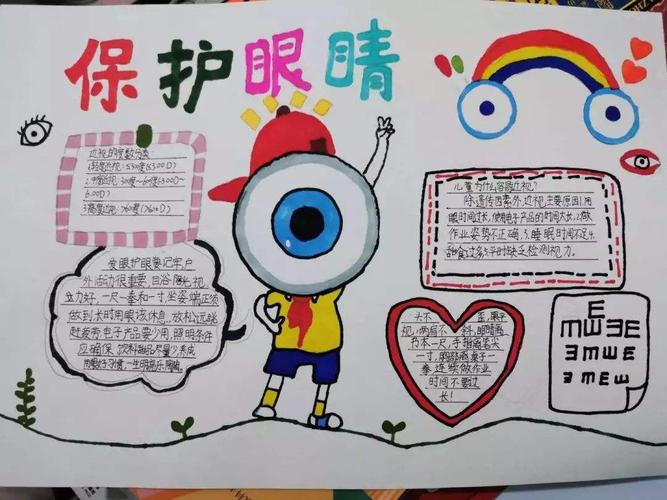 保护眼睛
近视的度数分类:
1.轻度近视:≤300度(≤3.00D)
2.中度近视:300度~600度(3.00D~
6.00D)
3.高度近视:>600度(>6.00D)
爱眼护眼要记牢,户
外活动很重要,自浴陽光视
立力好,一尺一拳和一寸,坐姿端正须
做到,长时用眼该休息,放松远眺
赶疲劳,电子产品要少用,照明条件
应确保,饮料甜品尽量少,养成
用眼好习惯,一生明亮乐陶陶
儿童为什么容易近视?
除遗传因素外,近视主要原因1.用
眼时间过长,使用电子产品的时间太长,2.做
作业姿势不正确,3.睡眠时间不足4.
甜食过多5.平时缺乏检测视力。
头不歪,眼平
视,两肩不斜,眼睛离
书本一尺,手指离笔尖
一寸,胸部离桌子一
拳,连续做作业
时间不要过
长!
E
EMWƎE
ƎMWE
ƎMWEM